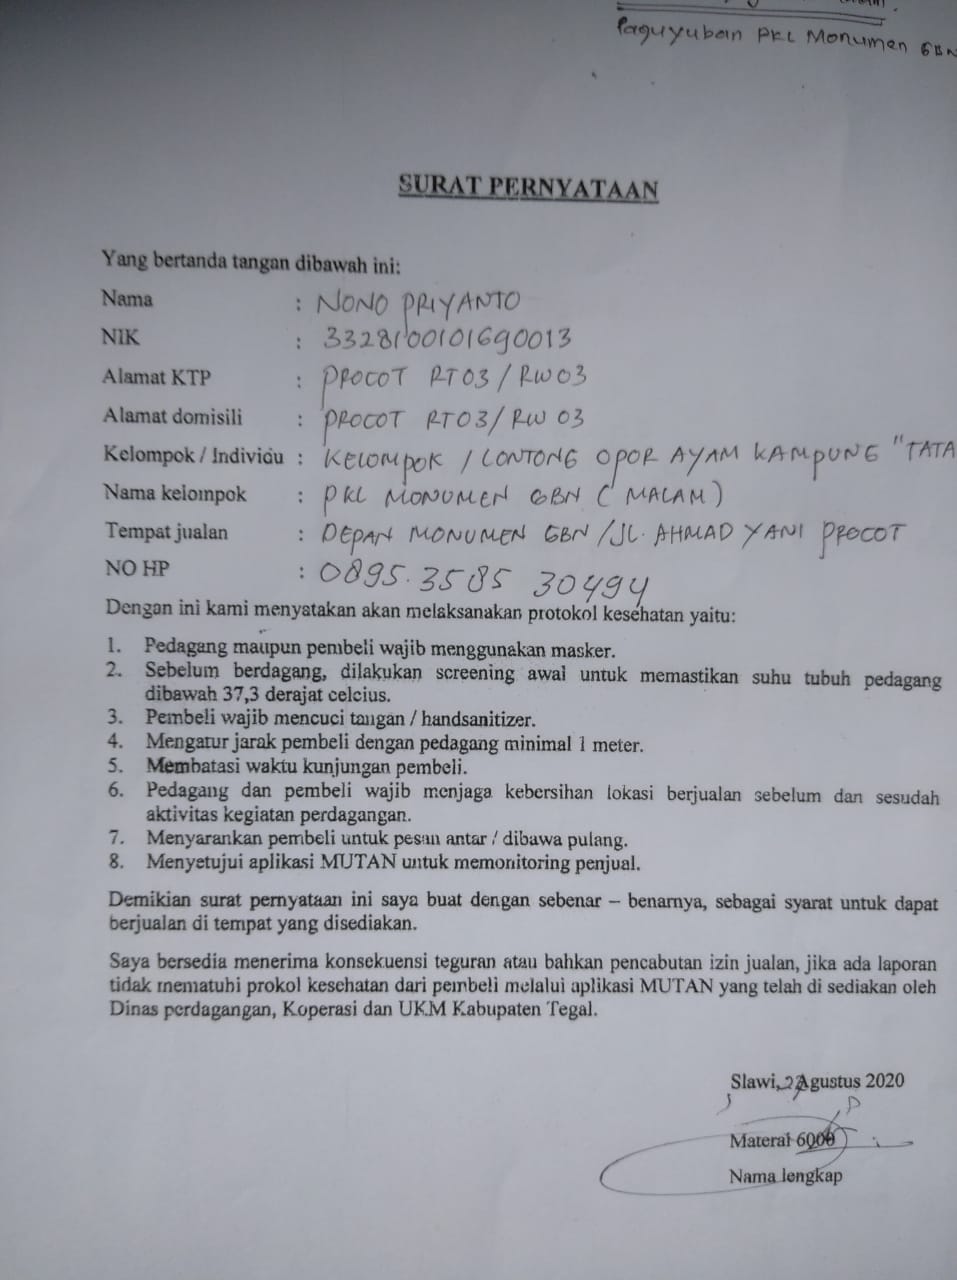 Paguyuban PKL Monumen GBN
SURAT PERNYATAAN
Yang bertanda tangan dibawah ini:
Nama : NONO PRIYANTO
NIK : 3328100101690013
Alamat KTP : PROCOT RT03/RW03
Alamat domisili : PROCOT RT03/RW 03
Kelompok / Individu : KELOMPOK / LONTONG OPOR AYAM KAMPUNG "TATA
Nama kelompok : PKL MONUMEN GBN (MALAM)
Tempat jualan : DEPAN MONUMEN GBN/JL. AHMAD YANI PROCOT
NO HP : 0895.3585 30494
Dengan ini kami menyatakan akan melaksanakan protokol kesehatan yaitu:
1. Pedagang maupun pembeli wajib menggunakan masker.
2. Sebelum berdagang, dilakukan screening awal untuk memastikan suhu tubuh pedagang
dibawah 37,3 derajat celcius.
3. Pembeli wajib mencuci tangan / handsanitizer.
4. Mengatur jarak pembeli dengan pedagang minimal 1 meter.
5. Membatasi waktu kunjungan pembeli.
6. Pedagang dan pembeli wajib menjaga kebersihan lokasi berjualan sebelum dan sesudah
aktivitas kegiatan perdagangan.
7. Menyarankan pembeli untuk pesan antar / dibawa pulang.
8. Menyetujui aplikasi MUTAN untuk memonitoring penjual.
Demikian surat pernyataan ini saya buat dengan sebenar – benarnya, sebagai syarat untuk dapat
berjualan di tempat yang disediakan.
Saya bersedia menerima konsekuensi teguran atau bahkan pencabutan izin jualan, jika ada laporan
tidak mematuhi prokol kesehatan dari pembeli melalui aplikasi MUTAN yang telah di sediakan oleh
Dinas perdagangan, Koperasi dan UKM Kabupaten Tegal.
Slawi, Agustus 2020
Materai 6000
Nama lengkap